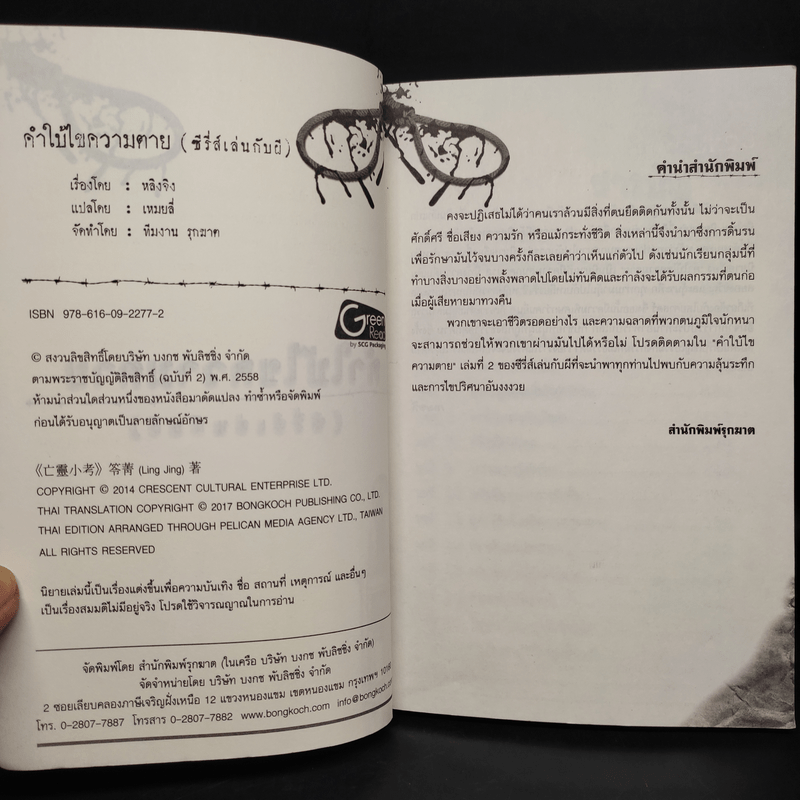 คำใบ้ไขความตาย (ซีรี่ส์เล่นกับผี)
เรื่องโดย : หลิงจิง
แปลโดย : เหมยลี่
จัดทำโดย : ทีมงาน รุกฆาต
ISBN 978-616-09-2277-2
Green
Read
by SCG Packaging
© สงวนลิขสิทธิ์โดยบริษัท บงกช พับลิชชิ่ง จำกัด
ตามพระราชบัญญัติลิขสิทธิ์ (ฉบับที่ 2) พ.ศ. 2558
ห้ามนำส่วนใดส่วนหนึ่งของหนังสือมาดัดแปลง ทำซ้ำหรือจัดพิมพ์
ก่อนได้รับอนุญาตเป็นลายลักษณ์อักษร
《亡靈小考》笭菁 (Ling Jing) 著
COPYRIGHT © 2014 CRESCENT CULTURAL ENTERPRISE LTD.
THAI TRANSLATION COPYRIGHT © 2017 BONGKOCH PUBLISHING CO., LTD.
THAI EDITION ARRANGED THROUGH PELICAN MEDIA AGENCY LTD., TAIWAN
ALL RIGHTS RESERVED
นิยายเล่มนี้เป็นเรื่องแต่งขึ้นเพื่อความบันเทิง ชื่อ สถานที่ เหตุการณ์ และอื่นๆ
เป็นเรื่องสมมติไม่มีอยู่จริง โปรดใช้วิจารณญาณในการอ่าน
จัดพิมพ์โดย สำนักพิมพ์รุกฆาต (ในเครือ บริษัท บงกช พับลิชชิ่ง จำกัด)
จัดจำหน่ายโดย บริษัท บงกช พับลิชชิ่ง จำกัด
2 ซอยเลียบคลองภาษีเจริญฝั่งเหนือ 12 แขวงหนองแขม เขตหนองแขม กรุงเทพฯ
โทร. 0-2807-7887 โทรสาร 0-2807-7882 www.bongkoch.com info@bongkoch.com
คำนำสำนักพิมพ์
คงจะปฏิเสธไม่ได้ว่าคนเราล้วนมีสิ่งที่ตนยึดติดกันทั้งนั้น ไม่ว่าจะเป็น
ศักดิ์ศรี ชื่อเสียง ความรัก หรือแม้กระทั่งชีวิต สิ่งเหล่านี้จึงนำมาซึ่งการดิ้นรน
เพื่อรักษามันไว้จนบางครั้งก็ละเลยคำว่าเห็นแก่ตัวไป ดังเช่นนักเรียนกลุ่มนี้ที่
ทำบางสิ่งบางอย่างพลั้งพลาดไปโดยไม่ทันคิดและกำลังจะได้รับผลกรรมที่ตนก่อ
เมื่อผู้เสียหายมาทวงคืน
พวกเขาจะเอาชีวิตรอดอย่างไร และความฉลาดที่พวกตนภูมิใจนักหนา
จะสามารถช่วยให้พวกเขาผ่านมันไปได้หรือไม่ โปรดติดตามใน "คำใบ้ไข
ความตาย" เล่มที่ 2 ของซีรี่ส์เล่นกับผีที่จะนำพาทุกท่านไปพบกับความลุ้นระทึก
และการไขปริศนาอันงงงวย
สำนักพิมพ์รุกฆาต